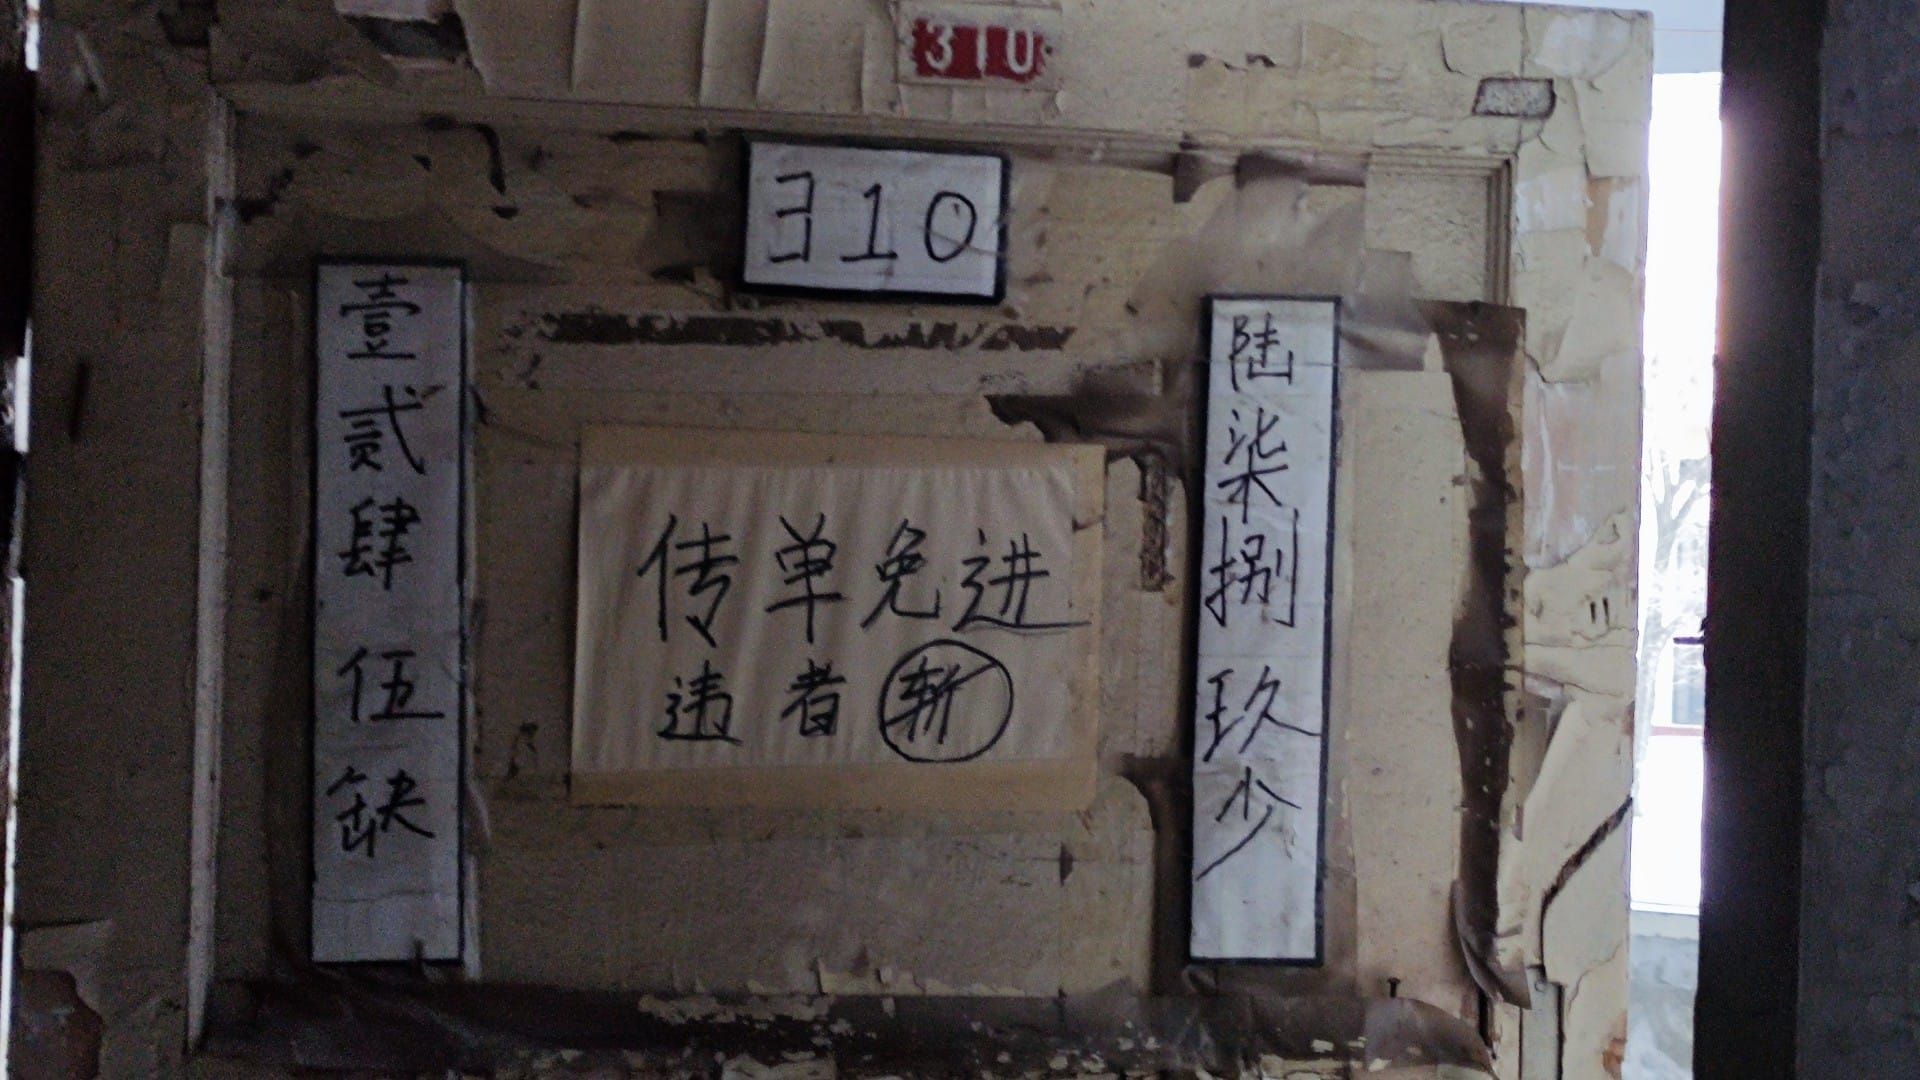 310
310
壹贰肆伍缺
陆柒捌玖少
传单免进
违者斩